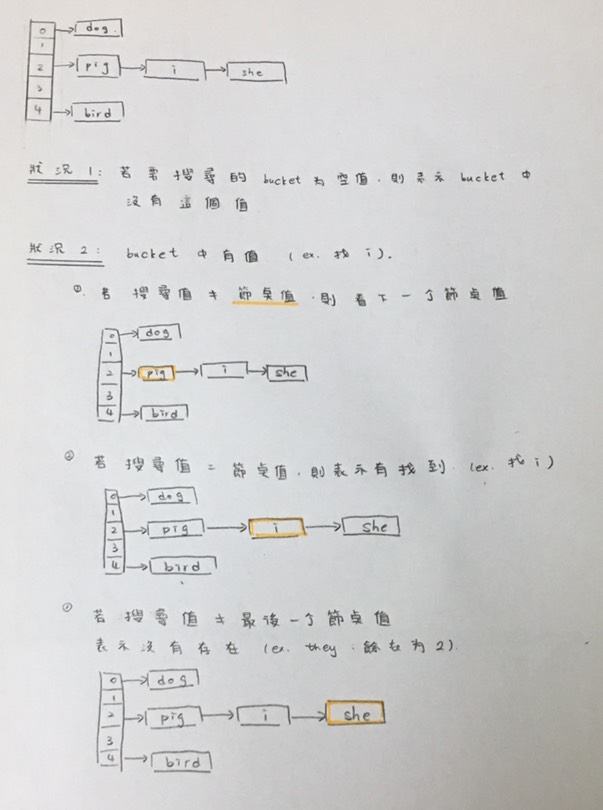 0 dog.
1
2 pig i she
3
4 bird
狀況1: 若要搜尋的 bucket 為空值,則表示 bucket 中
沒有這個值
狀況2: bucket 中有值 (ex. 找 i).
①. 若搜尋值 ≠ 節點值,則看下一個節點值
0 dog
1
2 pig i she
3
4 bird
② 若搜尋值 = 節點值,則表示有找到. (ex. 找 i)
0 dog
1
2 pig i she
3
4 bird
若搜尋值 ≠ 最後一個節點值
表示沒有存在 (ex. they,餘數為2).
0 dog
1
2 pig i she
3
4 bird